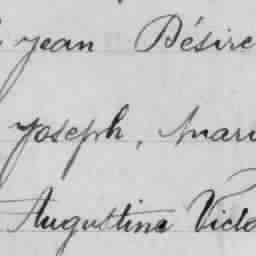 Jean Désiré
Joseph, Mari
Augustine Victo